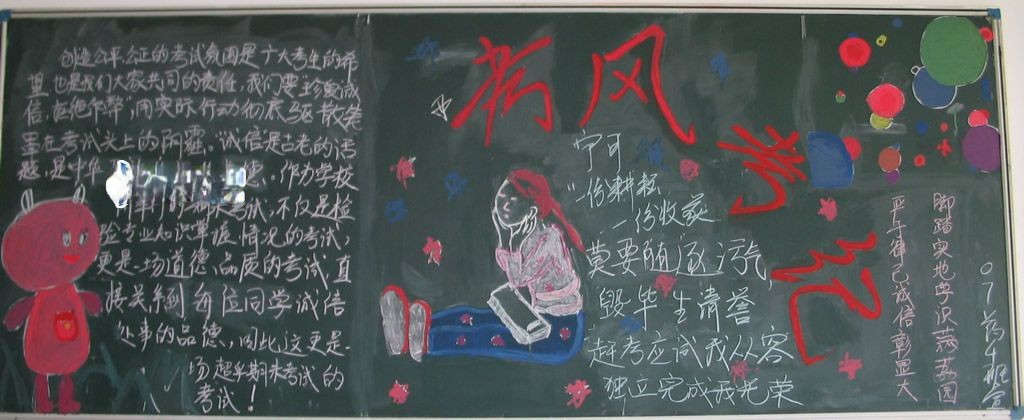 创造公平公正的考试氛围是广大考生的希
望,也是我们大家共同的责任,我们要"珍视诚
信,拒绝作弊",用实际行动彻底驱散笼
罩在考试头上的阴霾。诚信是古老的话
题,是中华 德,作为学校
期末考试,不仅是检
验专业知识掌握情况的考试,
更是一场道德、品质的考试,直
接关系到每位同学诚信
处事的品德,因此,这更是一
场超乎期末考试的
考试!
考风考纪
宁可
一份耕耘
一份收获
莫要随逐污气
毁毕生清誉
赶考应试我从容
独立完成我光荣
脚踏实地学识荡荡园
严于律己成信彰显大
07